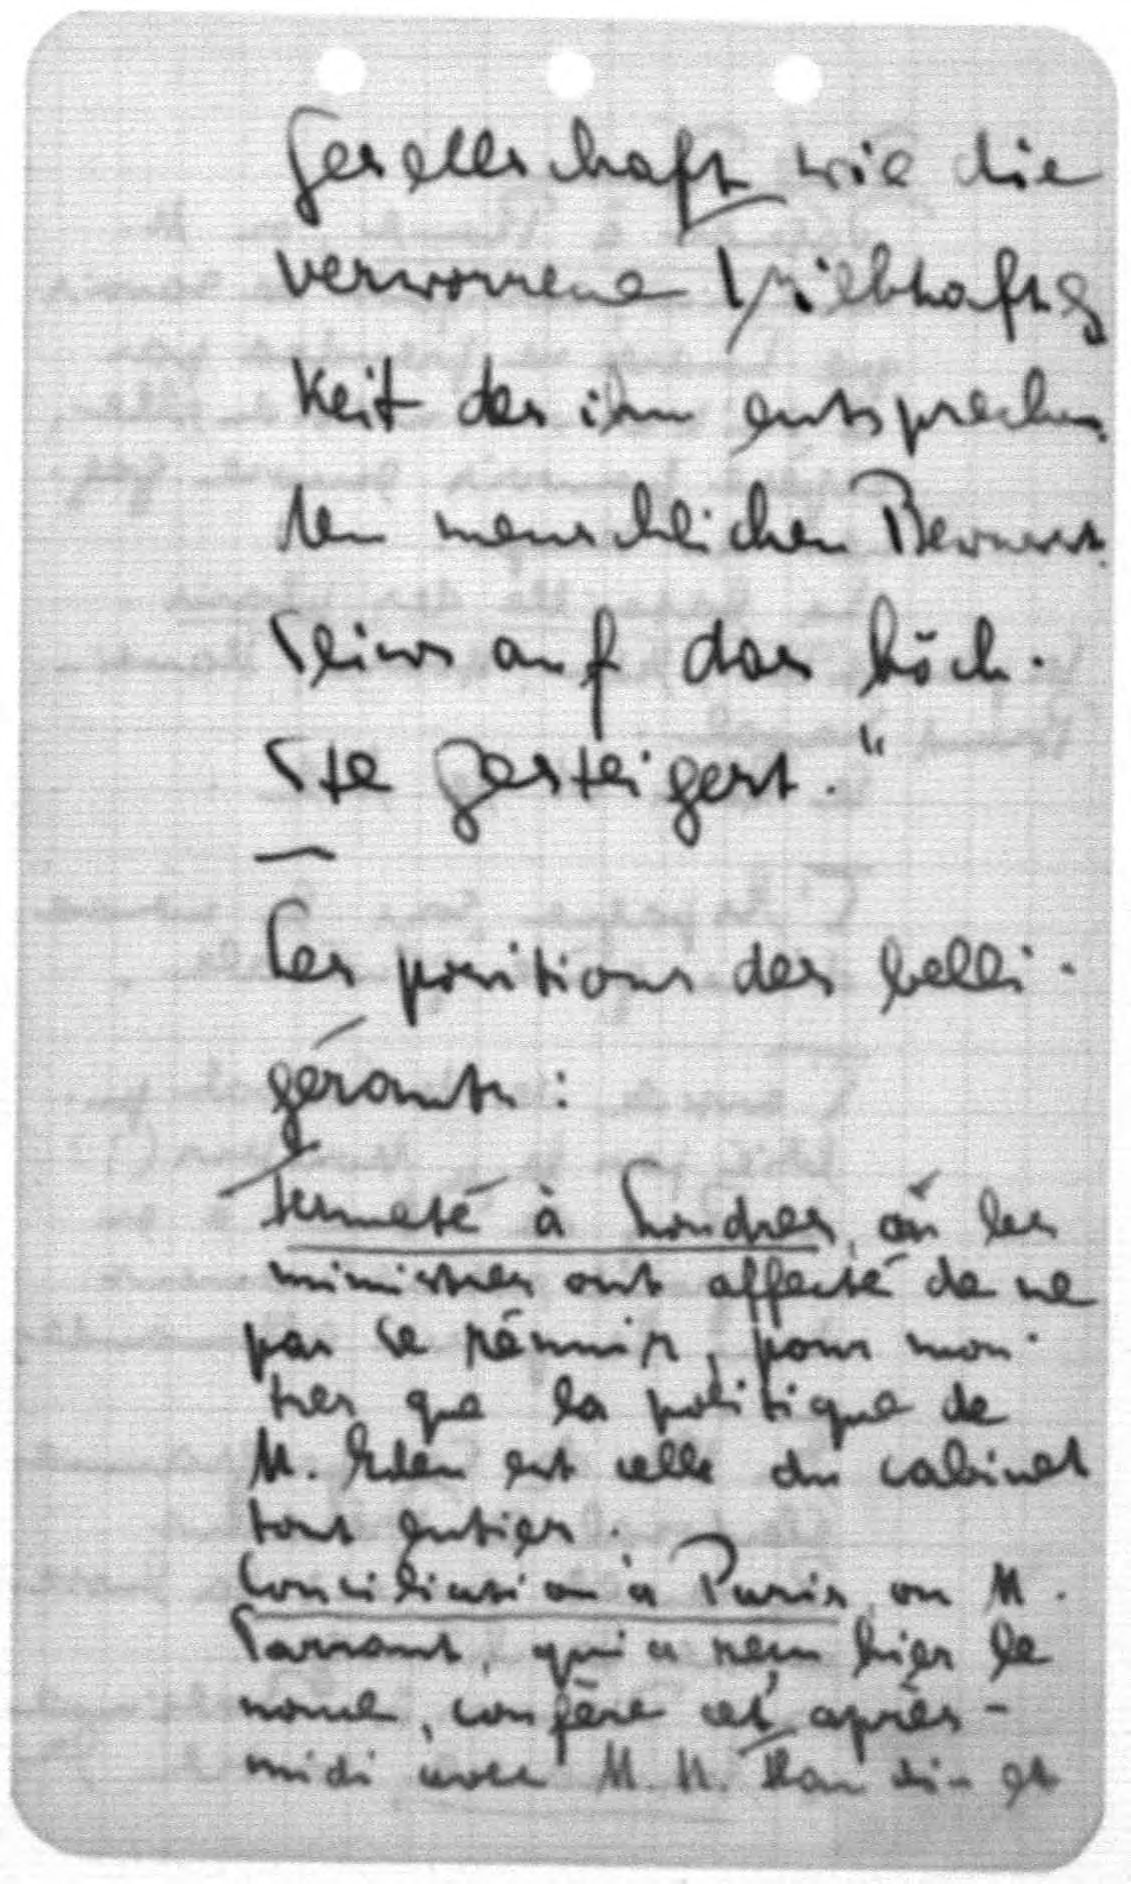 Gesellschaft wie die
verworrene Triebhaftig
keit des ihm entsprechen
den menschlichen Bewusst-
seins auf das höch-
ste gesteigert."
Les positions des belli-
gérants:
Fermeté à Londres, où les
ministres ont affecté de ne
pas se réunir, pour mon-
trer que la politique de
M. Eden est celle du cabinet
tout entier.
Conciliation à Paris, ou M.
Sarraut, qui a reçu hier le
nonce, confère cet après-
midi avec M.M. Flandin et